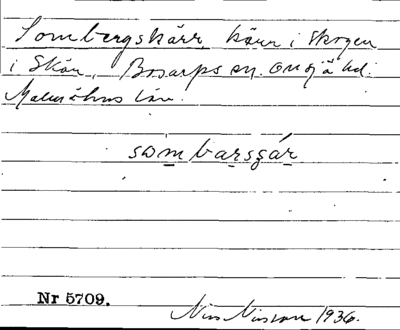 Sombergskärr, kärr i skogen
i Skån, Bosarps sn. Onsjö hd.
Malmöhus län.
sombarsgár
Nr 5709.
Nils Nilsson 1936.